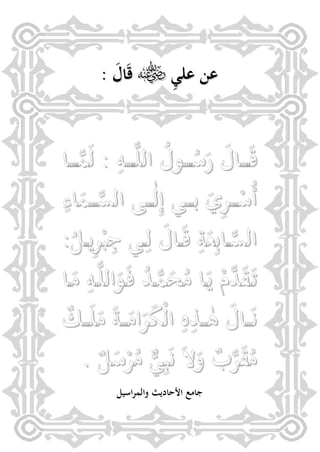 عن عليٍ ﷺ قَالَ :
قَـالَ رَسُـولُ اللَّـهِ : لَمَّـا
أُسْـرِيَ بِـي إِلَـى السَّـمَـاءِ
السَّـابِعَةِ قَـالَ لِـي جِبْرِيـلُ:
تَقَدَّمْ يَا مُحَمَّدُ فَوَاللَّـهِ مَـا
نَـالَ هَـذِهِ الْكَرَامَـةَ مَلَـكٌ
مُقَرَّبٌ وَلاَ نَبِيٌّ مُرْسَلٌ .
جامع الأحاديث والمراسيل